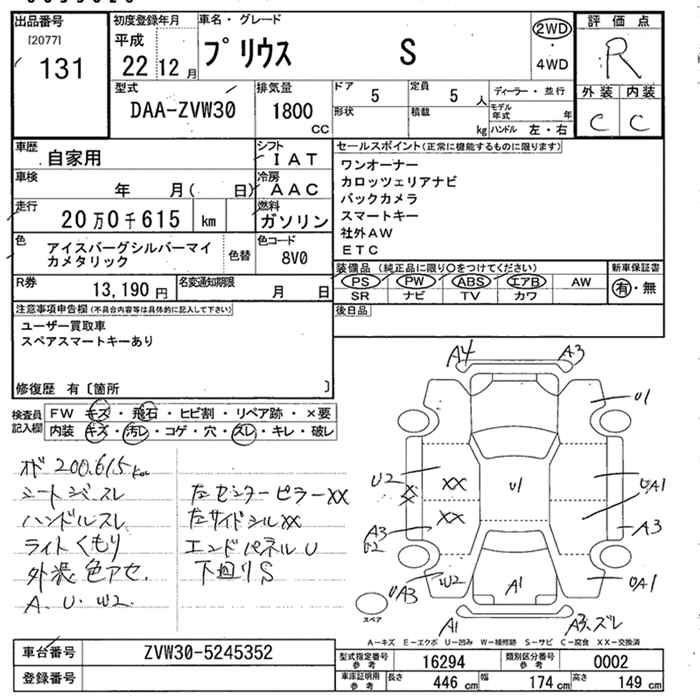 出品番号
[2077]
131
初度登録年月
平成
22 12月
車名・グレード
プリウス S
2WD
・
4WD
評価点
R
外装 内装
C C
型式
DAA-ZVW30
排気量
1800
CC
ドア
5
定員
5 人
ディーラー・並行
形状
積載
kg
モデル
年式 年
ハンドル 左・右
車歴
自家用
シフト
IAT
車検
年 月( 日)
冷房
AAC
走行
20万0千615 km
燃料
ガソリン
色
アイスバーグシルバーマイ
カメタリック
色替
色コード
8V0
R券
13,190円
名変通知期限
月 日
セールスポイント(正常に機能するものに限ります)
ワンオーナー
カロッツェリアナビ
バックカメラ
スマートキー
社外AW
ETC
装備品 (純正品に限り〇をつけてください)
PS PW ABS エアB AW
SR ナビ TV カワ
新車保証書
有・無
後日品
注意事項申告欄(不具合内容等は具体的に記入して下さい)
ユーザー買取車
スペアスマートキーあり
修復歴 有〔箇所 〕
検査員
記入欄
FW キズ・飛石・ヒビ割・リペア跡・×要
内装 キズ・汚レ・コゲ・穴・スレ・キレ・破レ
オド 200,615km
シートジ、スレ
ハンドルスレ
ライトくもり
外装色アセ、
A、U、W2、
左センターピラーXX
左サイドシルXX
エンドパネルU
下廻りS
A4
A3
U1
U2
XX
XX
XX
U1
UA1
A3
A3
U2
UA3
W2
A1
UA1
A1
A3、ズレ
スペア
A－キズ E－エクボ U－凹み W－補修跡 S－サビ C－腐食 XX－交換済
車台番号
ZVW30-5245352
登録番号
型式指定番号
参考
16294
類別区分番号
参考
0002
車庫証明用
参考
長さ
446 cm
幅
174 cm
高さ
149 cm